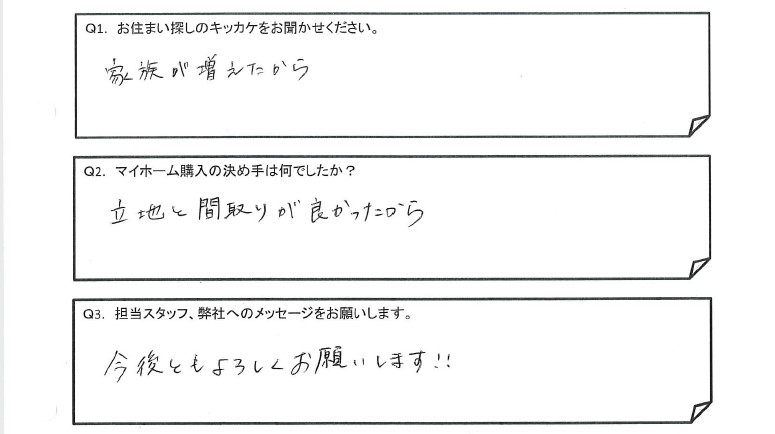 Q1. お住まい探しのキッカケをお聞かせください。
家族が増えたから
Q2. マイホーム購入の決め手は何でしたか？
立地と間取りが良かったから
Q3. 担当スタッフ、弊社へのメッセージをお願いします。
今後ともよろしくお願いします!!